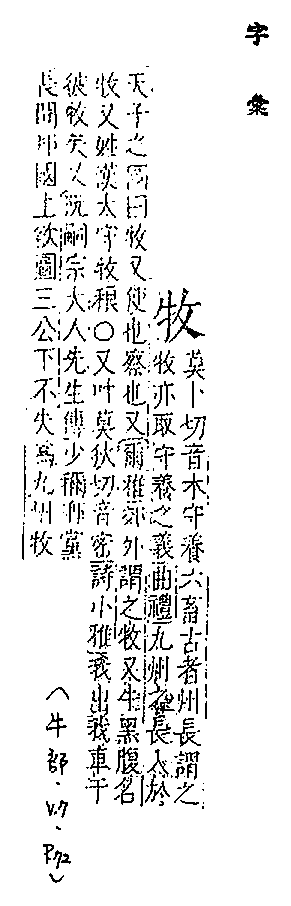 字彙
牧
莫卜切音木守養六畜古者州長謂之
牧亦取守養之義曲禮九州之長入於
天子之國曰牧又使也察也又爾雅郊外謂之牧又牛黑腹名
牧又姓漢太守牧稂〇又叶莫狄切音密詩小雅我出我車于
彼牧矣又阮嗣宗大人先生傳少稱鄉黨
長聞邦國上欲圖三公下不失爲九州牧
(牛部·V.7·P.72)